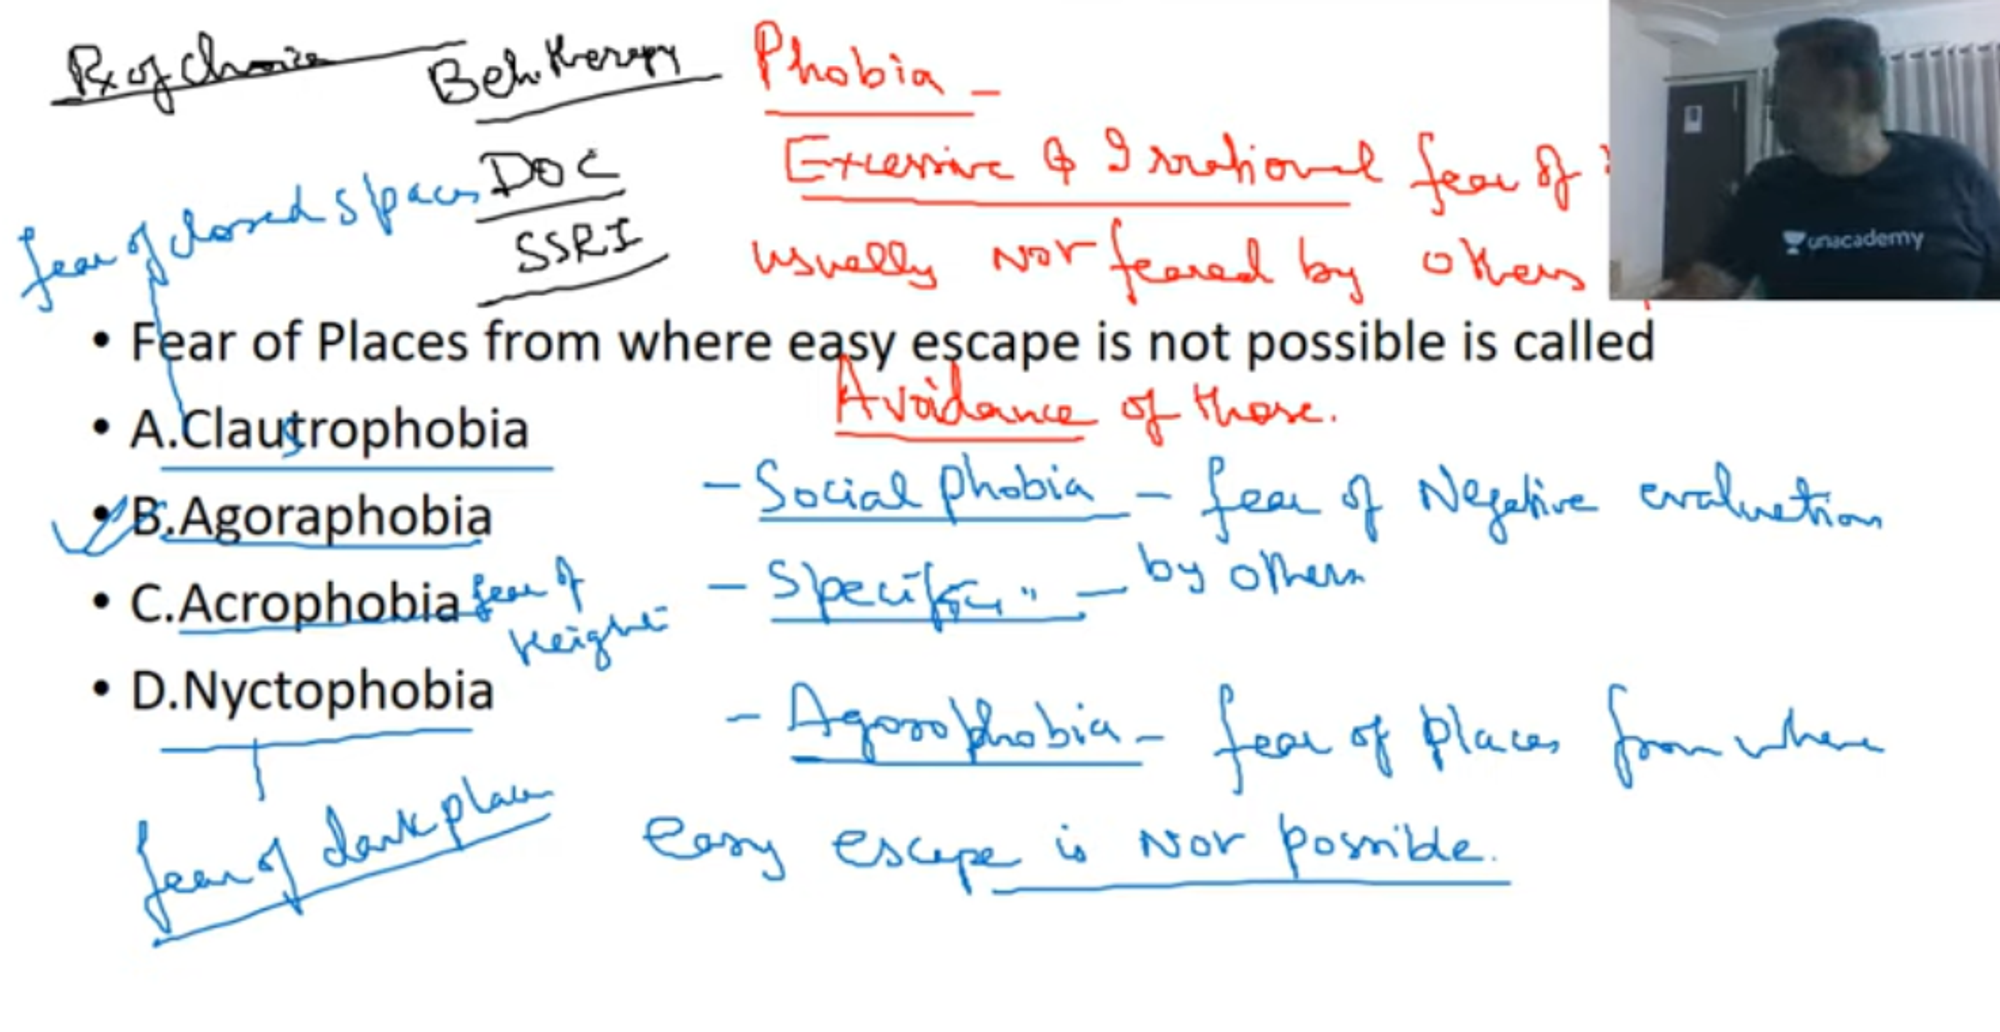 Rx of choice Beh. therapy
DOC
SSRI
Phobia -
Excessive & Irrational fear of
usually NOT feared by others
fear of closed spaces
• Fear of Places from where easy escape is not possible is called
Avoidance of those.
• A.Clautrophobia
s
• B.Agoraphobia
• C.Acrophobia fear of
Height
• D.Nyctophobia
fear of dark places
- Social phobia - fear of Negative evaluation
by others
- Specific " -
- Agoraphobia - fear of places from where
easy escape is NOT possible.
unacademy